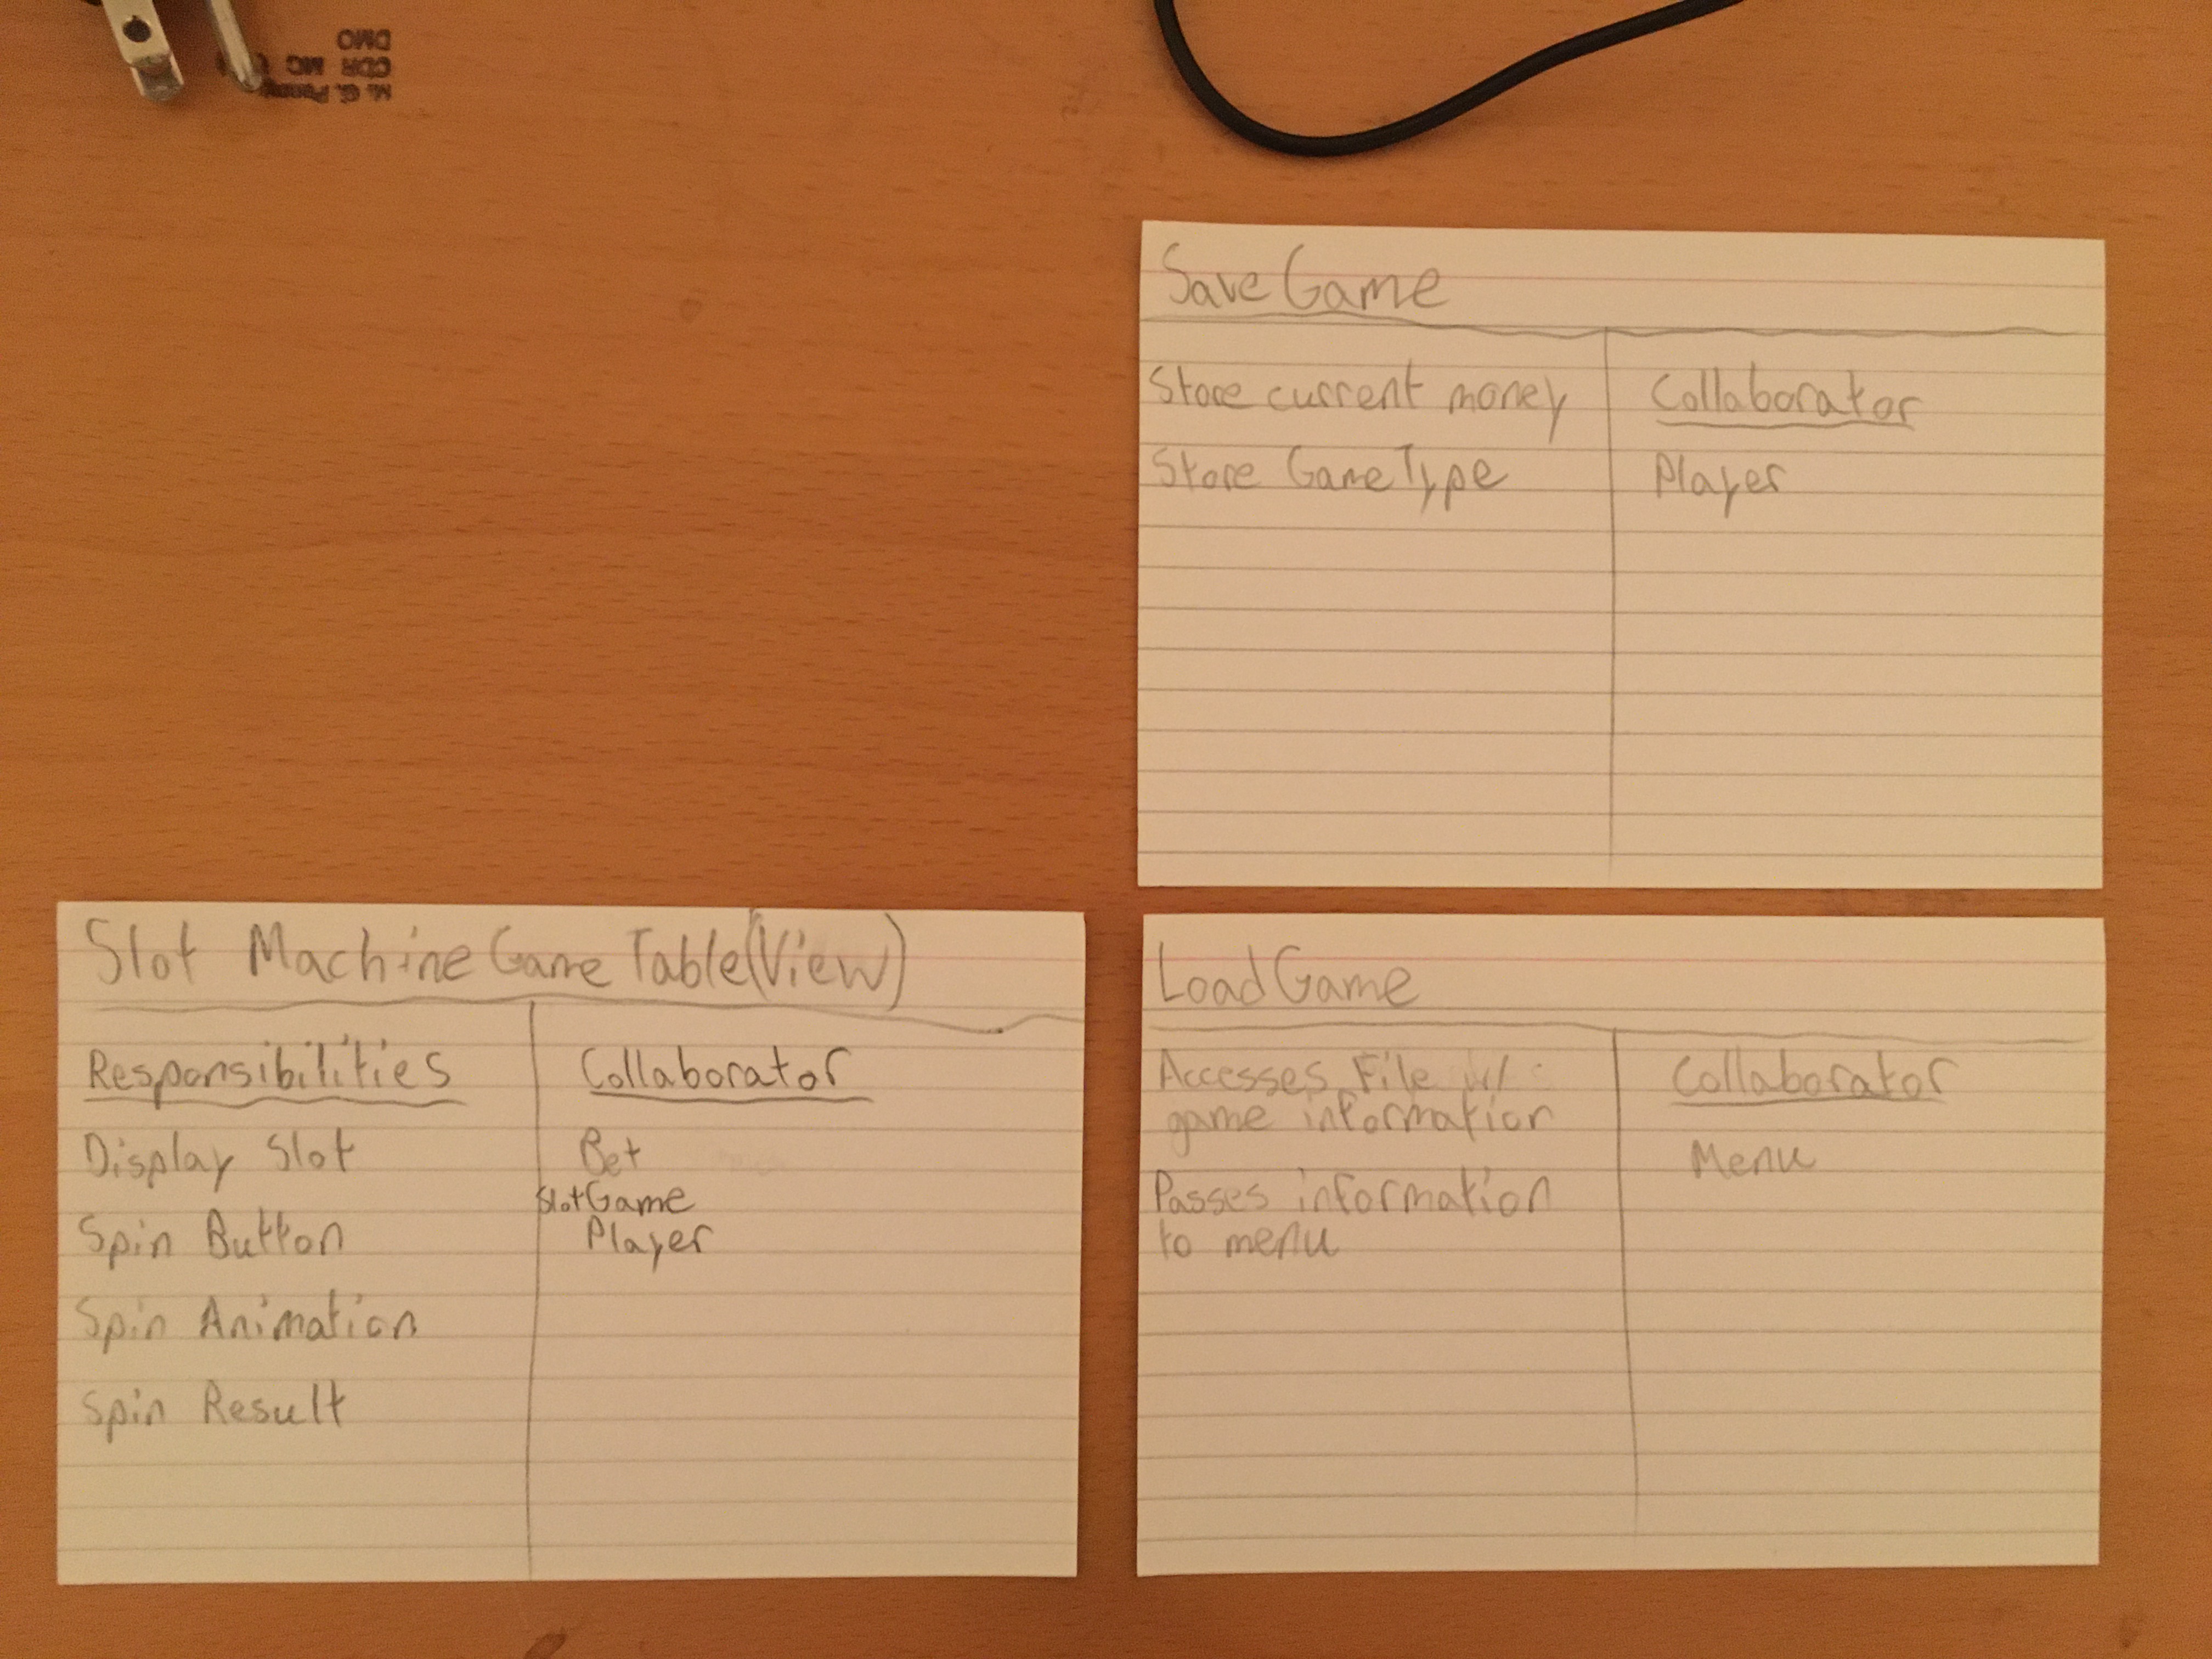 DMO
CDR MC
M. G.
Save Game
Store current money
Store GameType
Collaborator
Player
Slot Machine Game Table (View)
Responsibilities
Display Slot
Spin Button
Spin Animation
Spin Result
Collaborator
Bet
SlotGame
Player
Load Game
Accesses File w/
game information
Passes information
to menu
Collaborator
Menu